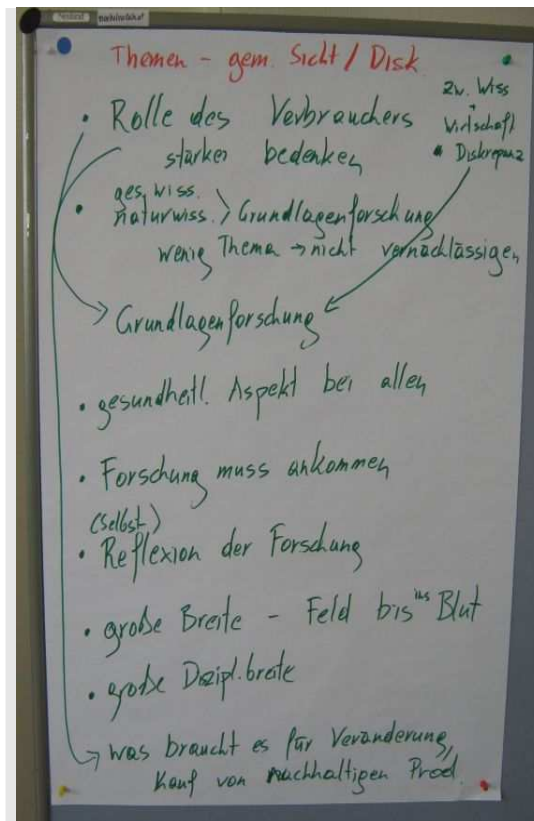 Themen - gem. Sicht / Disk.
zw. Wiss
+
Wirtschaft
• Diskrepanz
• Rolle des Verbrauchers
stärker bedenken
• ges. wiss.
naturwiss. > Grundlagenforschung
wenig Thema → nicht vernachlässigen
→ Grundlagenforschung ←
• gesundheitl. Aspekt bei allen
• Forschung muss ankommen
(Selbst-)
• Reflexion der Forschung
• große Breite - Feld bis ins Blut
• große Diszipl.breite
→ was braucht es für Veränderung,
Kauf von nachhaltigen Prod.